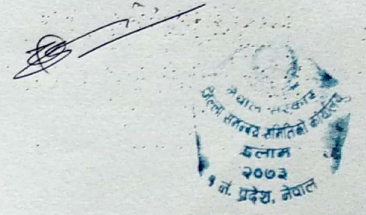 नेपाल सरकार
जिल्ला समन्वय समितिको कार्यालय
इलाम
२०७३
१ नं. प्रदेश, नेपाल